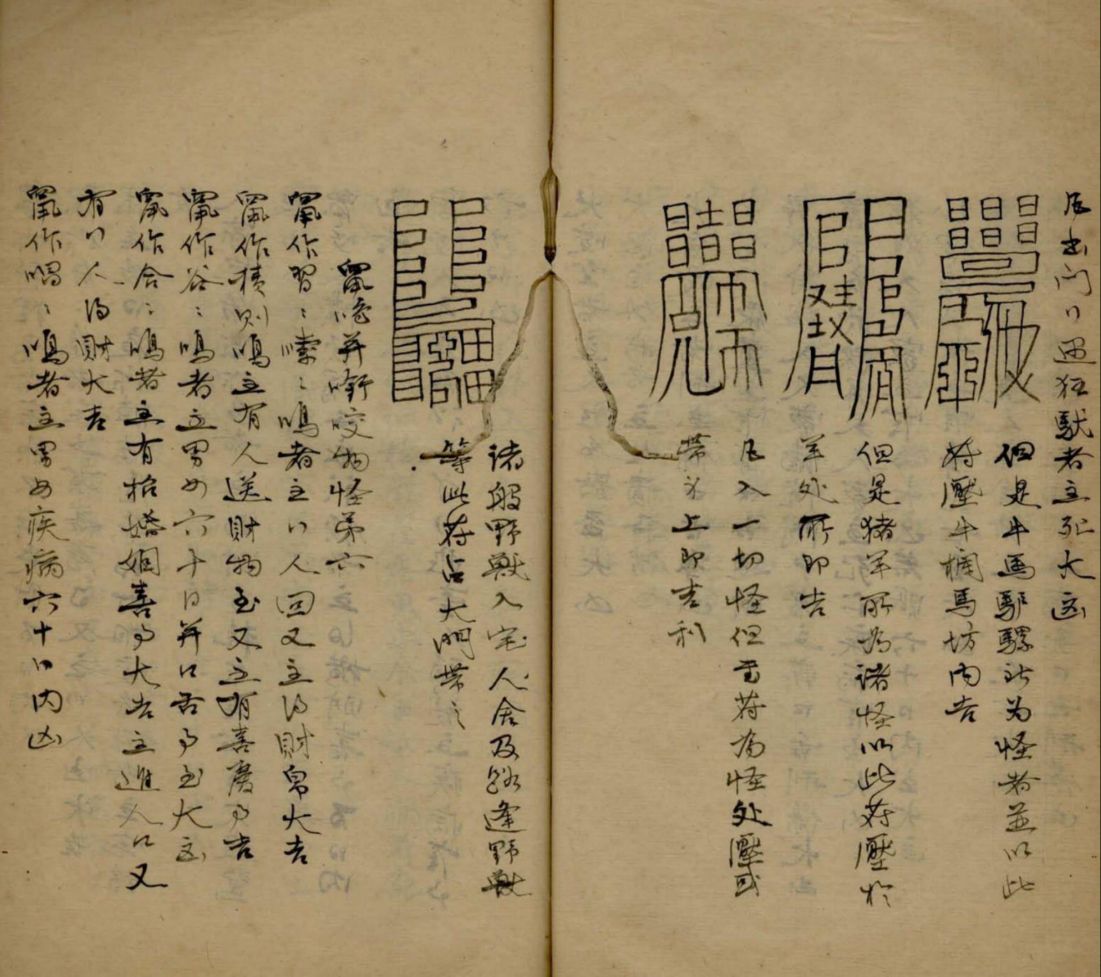 凡出门门遇狂獣者主死大凶
但是牛馬驢騾所为怪者並以此
符壓牛欄馬坊内吉
但是猪羊所為諸怪以此符壓於
羊处所即吉
凡入一切怪但書符為怪处壓或
帶身上即吉利
諸般野獣入宅人舍及路逢野獣
等此符占大門帶之
鼠怪并囓咬物怪第六
鼠作習〻嗦〻鳴者主口人回又主淂財帛大吉
鼠作積則鳴主有人送財物至又主有喜慶事吉
鼠作谷〻鳴者主男女六十日并口舌事至大凶
鼠作合〻鳴者主有招婚姻喜事大吉主進人口又
有口人淂財大吉
鼠作唱〻鳴者主男女疾病六十日内凶